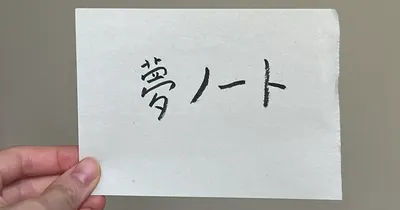 夢ノート